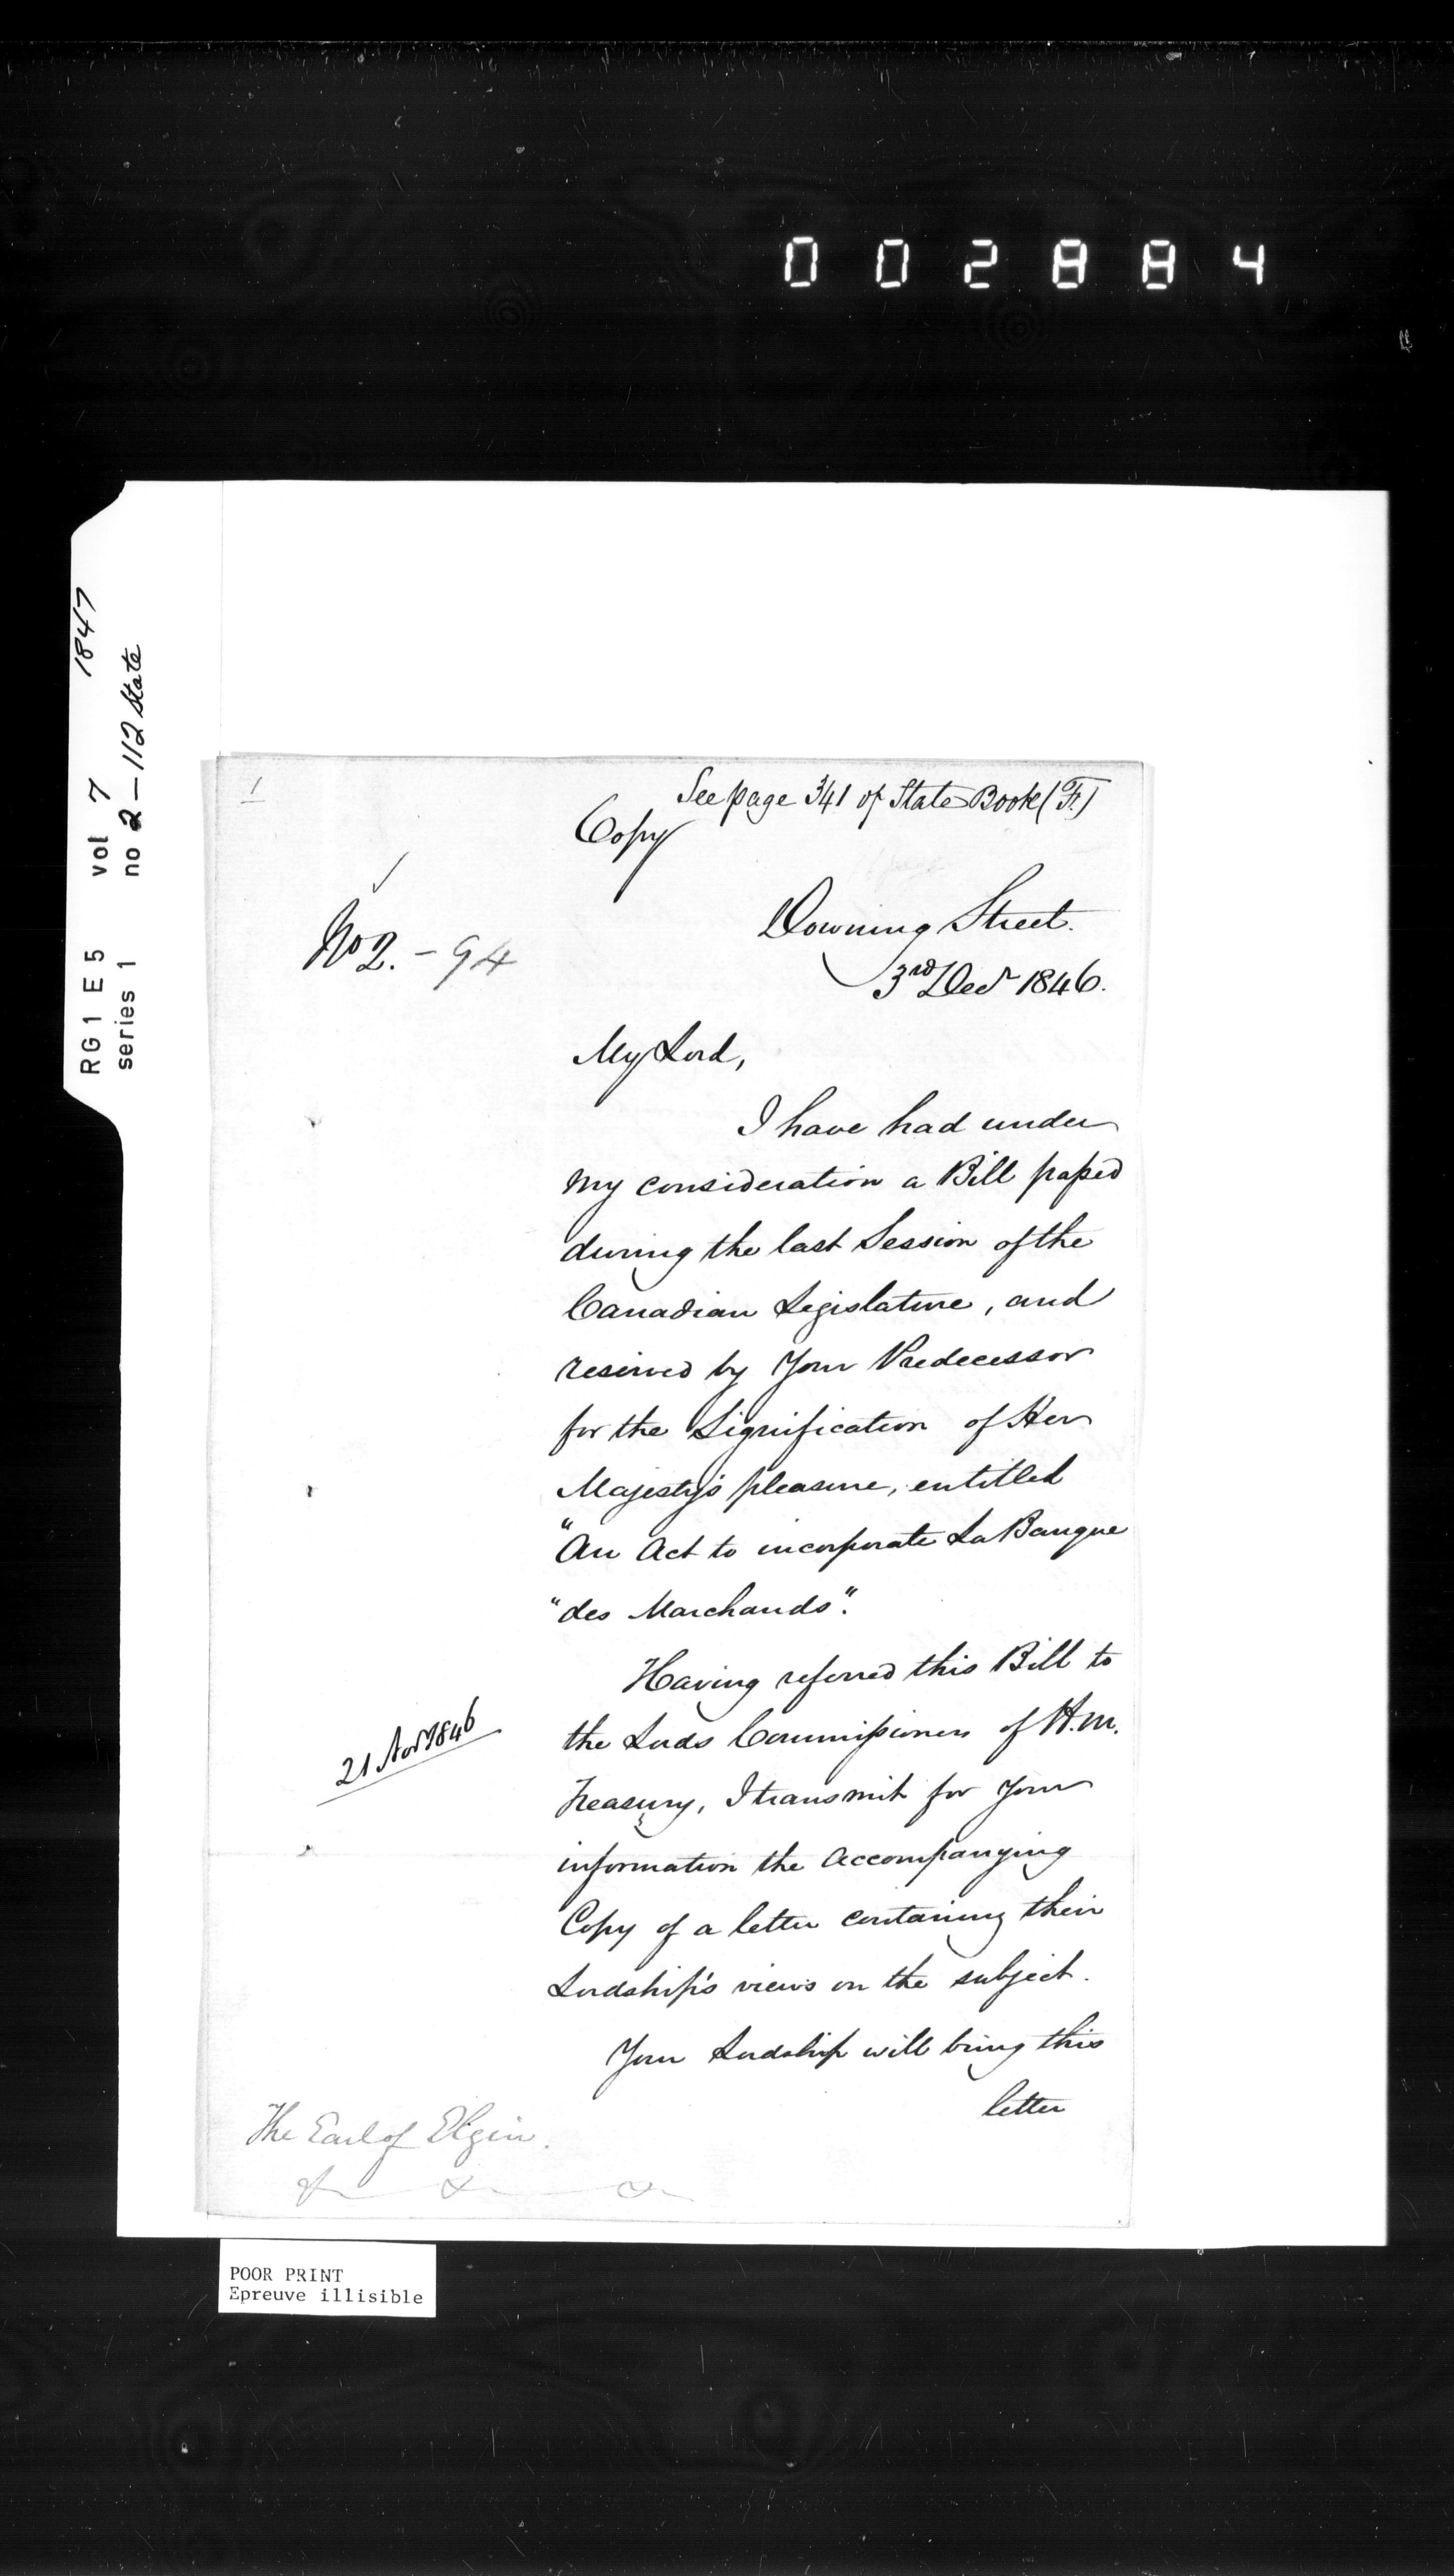 002884
RG1 E5 vol 7 1847
series 1 no 2-112 State
1
See page 341 of State Book (F.)
Copy
No 2. - 94
Downing Street.
3rd Decr 1846.
My Lord,
I have had under
my consideration a Bill passed
during the last Session of the
Canadian Legislature, and
reserved by Your Predecessor
for the Signification of Her
Majesty's pleasure, entitled
"An Act to incorporate La Banque
"des Marchands".
Having referred this Bill to
the Lords Commissioners of H.M.
21 Novr 1846
Treasury, I transmit for Your
information the accompanying
Copy of a letter containing their
Lordship's views on the subject.
Your Lordship will bring this
letter
The Earl of Elgin.
&c &c &c
POOR PRINT
Epreuve illisible